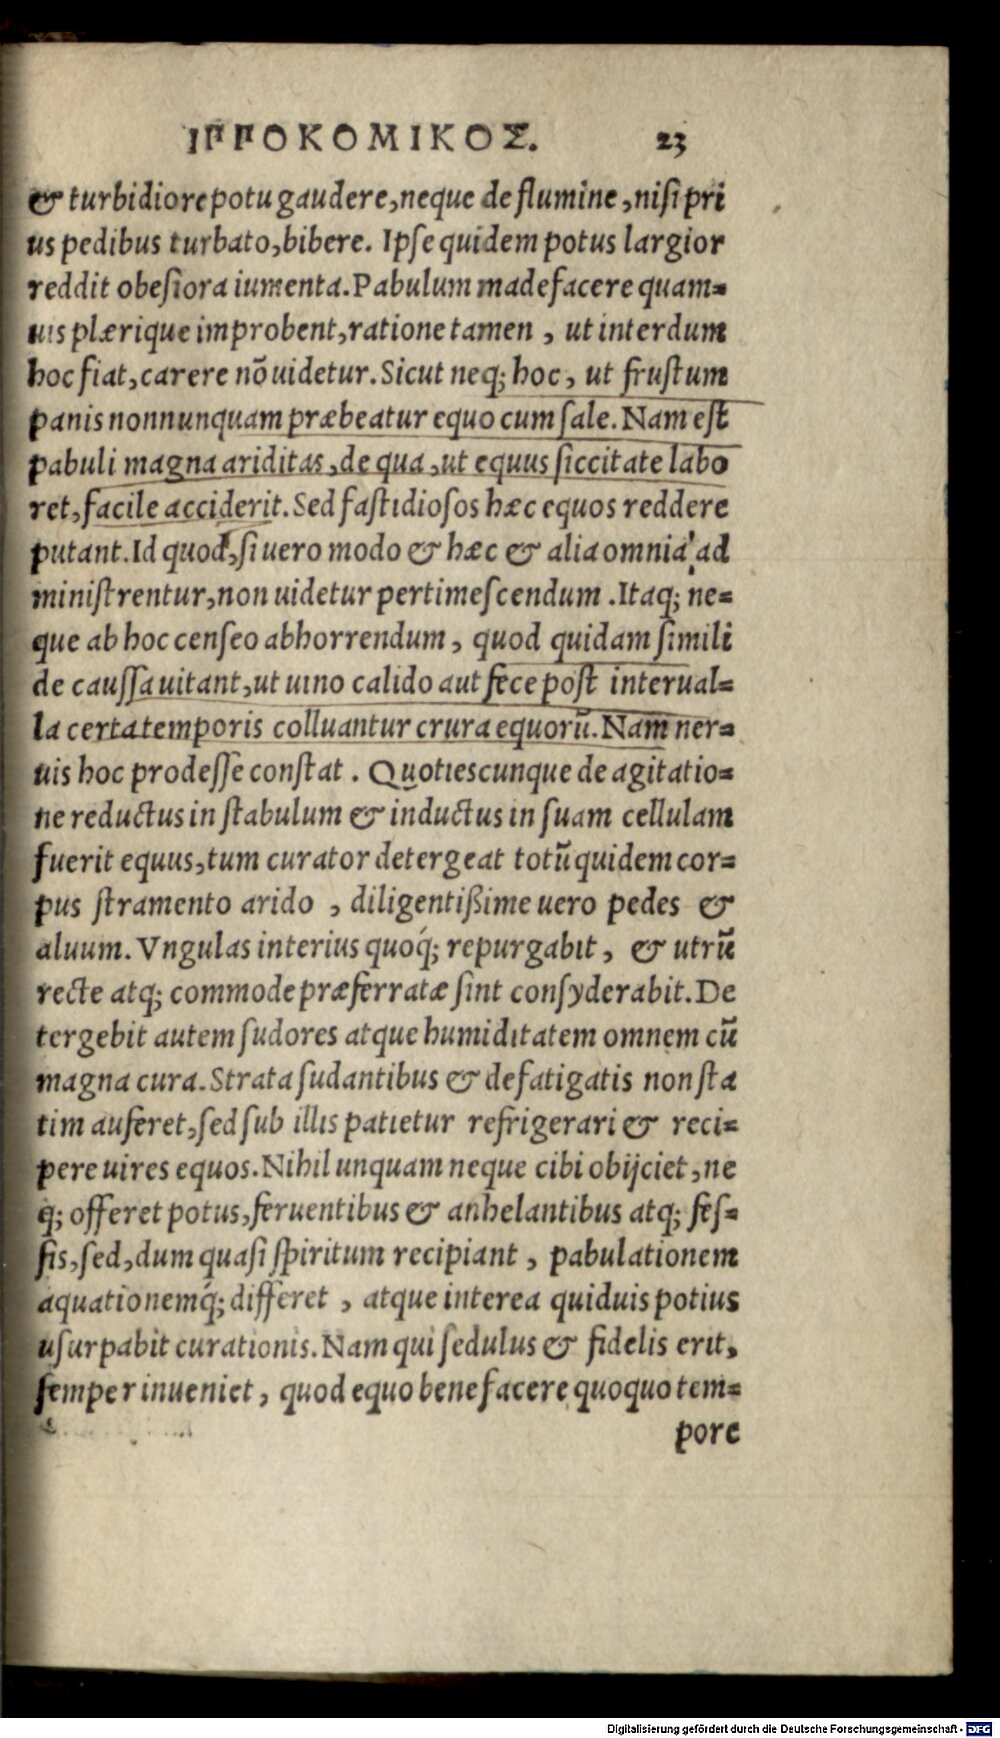 ΙΠΠΟΚΟΜΙΚΟΣ. 23
& turbidiore potu gaudere, neque de flumine, niſi pri
us pedibus turbato, bibere. Ipſe quidem potus largior
reddit obeſiora iumenta. Pabulum madefacere quam=
uis plærique improbent, ratione tamen, ut interdum
hoc fiat, carere nō uidetur. Sicut neq; hoc, ut fruſtum
panis nonnunquam præbeatur equo cum ſale. Nam eſt
pabuli magna ariditas, de qua, ut equus ſiccitate labo
ret, facile acciderit. Sed faſtidioſos hæc equos reddere
putant. Id quod, ſi uero modo & hæc & alia omnia ad
miniſtrentur, non uidetur pertimeſcendum. Itaq; ne=
que ab hoc cenſeo abhorrendum, quod quidam ſimili
de cauſſa uitant, ut uino calido aut fece poſt interual=
la certa temporis colluantur crura equorū. Nam ner=
uis hoc prodeſſe conſtat. Quotiescunque de agitatio=
ne reductus in ſtabulum & inductus in ſuam cellulam
fuerit equus, tum curator detergeat totū quidem cor=
pus ſtramento arido, diligentiſſime uero pedes &
aluum. Vngulas interius quoq́; repurgabit, & utrū
recte atq; commode præferratæ ſint conſyderabit. De
tergebit autem ſudores atque humiditatem omnem cū
magna cura. Strata ſudantibus & defatigatis non ſta
tim auferet, ſed ſub illis patietur refrigerari & reci=
pere uires equos. Nihil unquam neque cibi obijciet, ne
q; offeret potus, feruentibus & anhelantibus atq; feſ=
ſis, ſed, dum quaſi ſpiritum recipiant, pabulationem
aquationemq́; differet, atque interea quiduis potius
uſurpabit curationis. Nam qui ſedulus & fidelis erit,
ſemper inueniet, quod equo bene facere quoquo tem=
pore
Digitalisierung gefördert durch die Deutsche Forschungsgemeinschaft - DFG